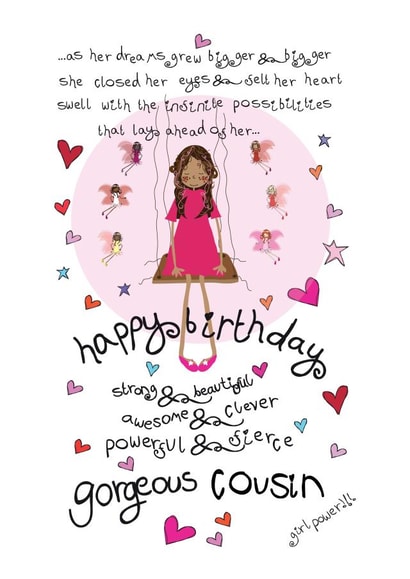 ...as her dreams grew bigger & bigger
she closed her eyes & felt her heart
swell with the infinite possibilities
that lay ahead of her...
happy birthday
strong & beautiful
awesome & clever
powerful & fierce
gorgeous cousin
girl power!!!